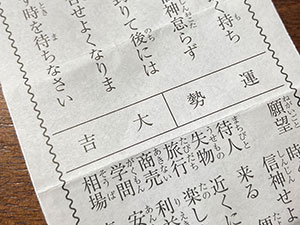 く持ち
信神怠らず
到りて後には
合せよくなりま
す時を待ちなさい
運勢
大吉
願望 時
信神せよ
待人 来る
失物 近くに
旅行 楽し
商売 利
学問 安
相場